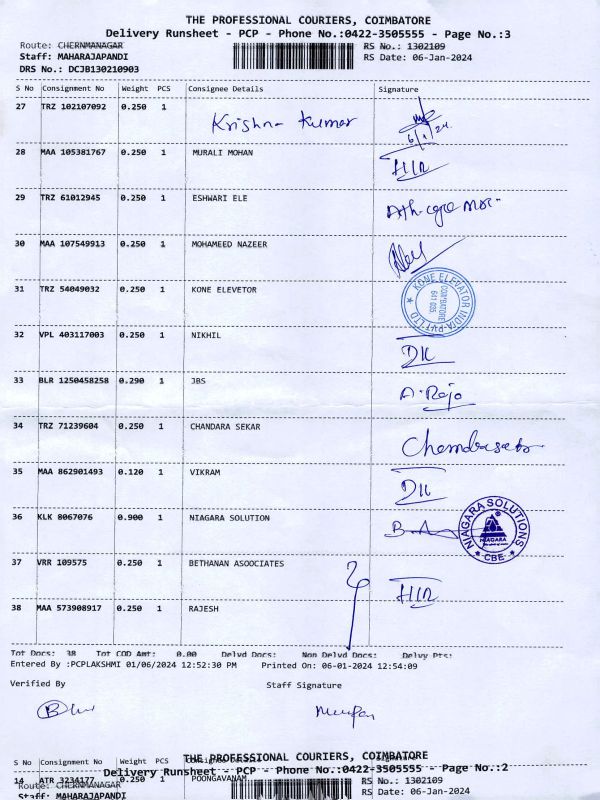 THE PROFESSIONAL COURIERS, COIMBATORE
Delivery Runsheet - PCP - Phone No.:0422-3505555 - Page No.:3
Route: CHERNMANAGAR RS No.: 1302109
Staff: MAHARAJAPANDI RS Date: 06-Jan-2024
DRS No.: DCJB130210903
S No Consignment No Weight PCS Consignee Details Signature
27 TRZ 102107092 0.250 1 Krishna Kumar 6/1/24
28 MAA 105381767 0.250 1 MURALI MOHAN
29 TRZ 61012945 0.250 1 ESHWARI ELE
30 MAA 107549913 0.250 1 MOHAMEED NAZEER
31 TRZ 54049032 0.250 1 KONE ELEVETOR KONE ELEVATOR INDIA PVT LTD COIMBATORE 641 035
32 VPL 403117003 0.250 1 NIKHIL
33 BLR 1250458258 0.290 1 JBS A. Raja
34 TRZ 71239604 0.250 1 CHANDARA SEKAR
35 MAA 862901493 0.120 1 VIKRAM
36 KLK 8067076 0.900 1 NIAGARA SOLUTION NIAGARA SOLUTIONS NIAGARA CBE
37 VRR 109575 0.250 1 BETHANAN ASOOCIATES
38 MAA 573908917 0.250 1 RAJESH
Tot Docs: 38 Tot COD Amt: 0.00 Delvd Docs: Non Delvd Docs: Delvy Pts:
Entered By :PCPLAKSHMI 01/06/2024 12:52:30 PM Printed On: 06-01-2024 12:54:09
Verified By Staff Signature
THE PROFESSIONAL COURIERS, COIMBATORE
S No Consignment No Weight PCS Consignee Details
Delivery Runsheet - PCP - Phone No.:0422-3505555 - Page No.:2
14 ATR 3234177 0.250 1 POONGAVANAM
Route: CHERNMANAGAR RS No.: 1302109
Staff: MAHARAJAPANDI RS Date: 06-Jan-2024